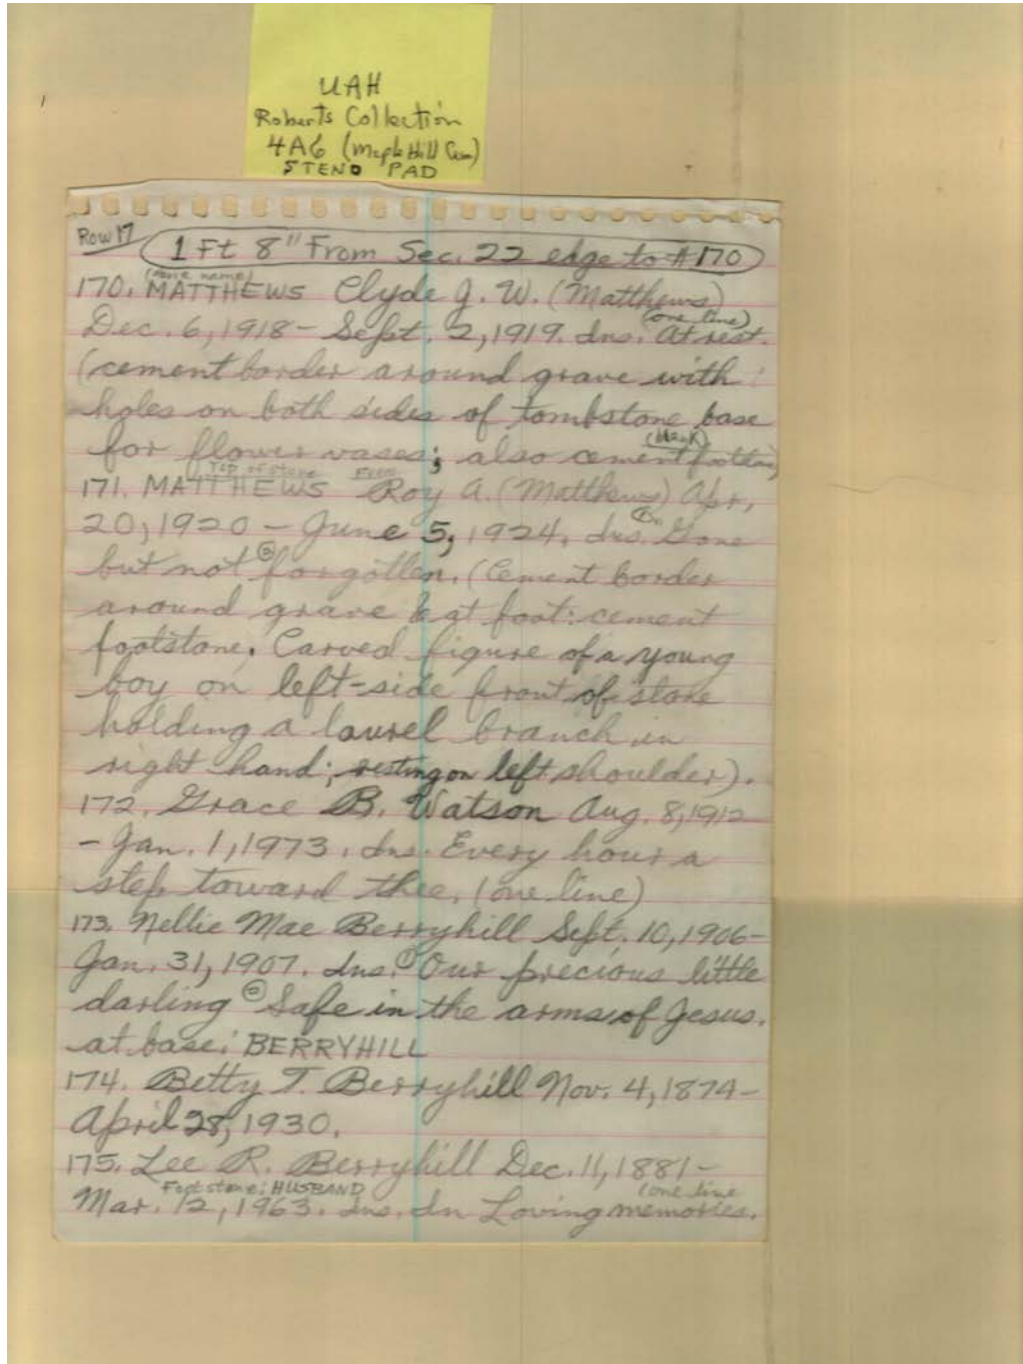 UAH
Roberts Collection
4A6 (Maple Hill Cem)
STENO PAD
Row 17
1 Ft 8" From Sec. 22 edge to #170
(above name)
170. MATTHEWS Clyde J. W. (Matthews)
(one line)
Dec. 6, 1918 - Sept. 2, 1919. Ins. At rest.
(cement border around grave with
holes on both sides of tombstone base
(blank)
for flower vases; also cement footstone)
Top of stone
171. MATTHEWS Roy A. (Matthews) Apr.
20, 1920 - June 5, 1924. Ins. ① Gone
but not ② forgotten. (Cement border
around grave & at foot: cement
footstone. Carved figure of a young
boy on left-side front of stone
holding a laurel branch in
right hand; resting on left shoulder).
172. Grace B. Watson Aug. 8, 1912
- Jan. 1, 1973. Ins. Every hour a
step toward thee. (one line)
173. Nellie Mae Berryhill Sept. 10, 1906-
Jan. 31, 1907. Ins. ① Our precious little
darling ② Safe in the arms of Jesus.
at base: BERRYHILL
174. Betty T. Berryhill Nov. 4, 1874-
April 28, 1930.
175. Lee R. Berryhill Dec. 11, 1881-
Footstone: HUSBAND (one line
Mar. 12, 1963. Ins. In Loving memories.